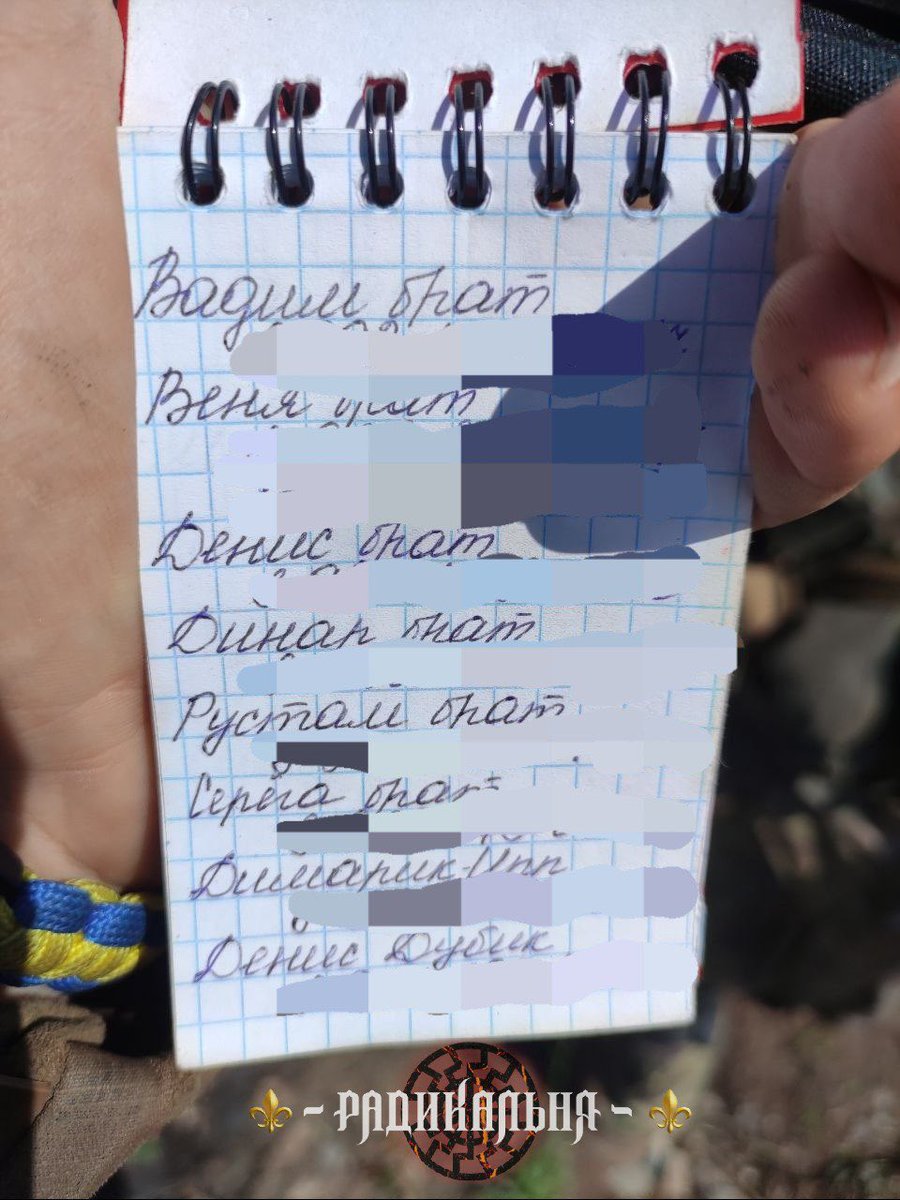 Вадим брат
Веня
Денис брат
Динар брат
Рустам брат
Серёга брат
Димарик
Денис Дубик
- РАДИКАЛЬНА -